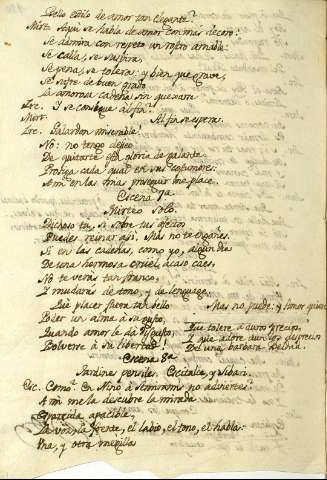 estilo de amor tan elegante?
Mirt. Aqui se habla de amor con mas decoro:
Se admira con respeto un rostro amable:
Se calla, se suspira,
Se pena, se tolera: y bien que grave,
Se sufre de buen grado
La amorosa cadena sin quexarse
Sce. Y se consigue al fin?
Mirt. Al fin se espera.
Sce. Galardon miserable!
No: no tengo deseo
De quitarte esta gloria de galante
Prosiga cada qual en sus costumbres:
A mi en las mias proseguir me place.
Escena 7.a
Mirteo solo.
Dichoso tu, si sobre tus afectos
Puedes reinar asi. Mas no te engañes.
Si en las cadenas, como yo, algun dia
De una hermosa cruel acaso caes,
No te verás tan franco,
Y mudarás de tono, y de lenguage.
Qué placer fuera tan bello
Poder un alma á su gusto,
Quando amor la dá disgusto,
Bolverse á su libertad!
Mas no puede: y amor quiere
Que tolere
Y que adore aun los desprecios
De una barbara beldad.
Escena 8.a
Jardines pensiles. Scitalce, y Sibari.
Sc. Como? En Nino á Semiramis no adviertes?
A mi me la descubre la mirada
apacible,
La voz, la frente, el labio, el tono, el habla:
Una, y otra mexilla